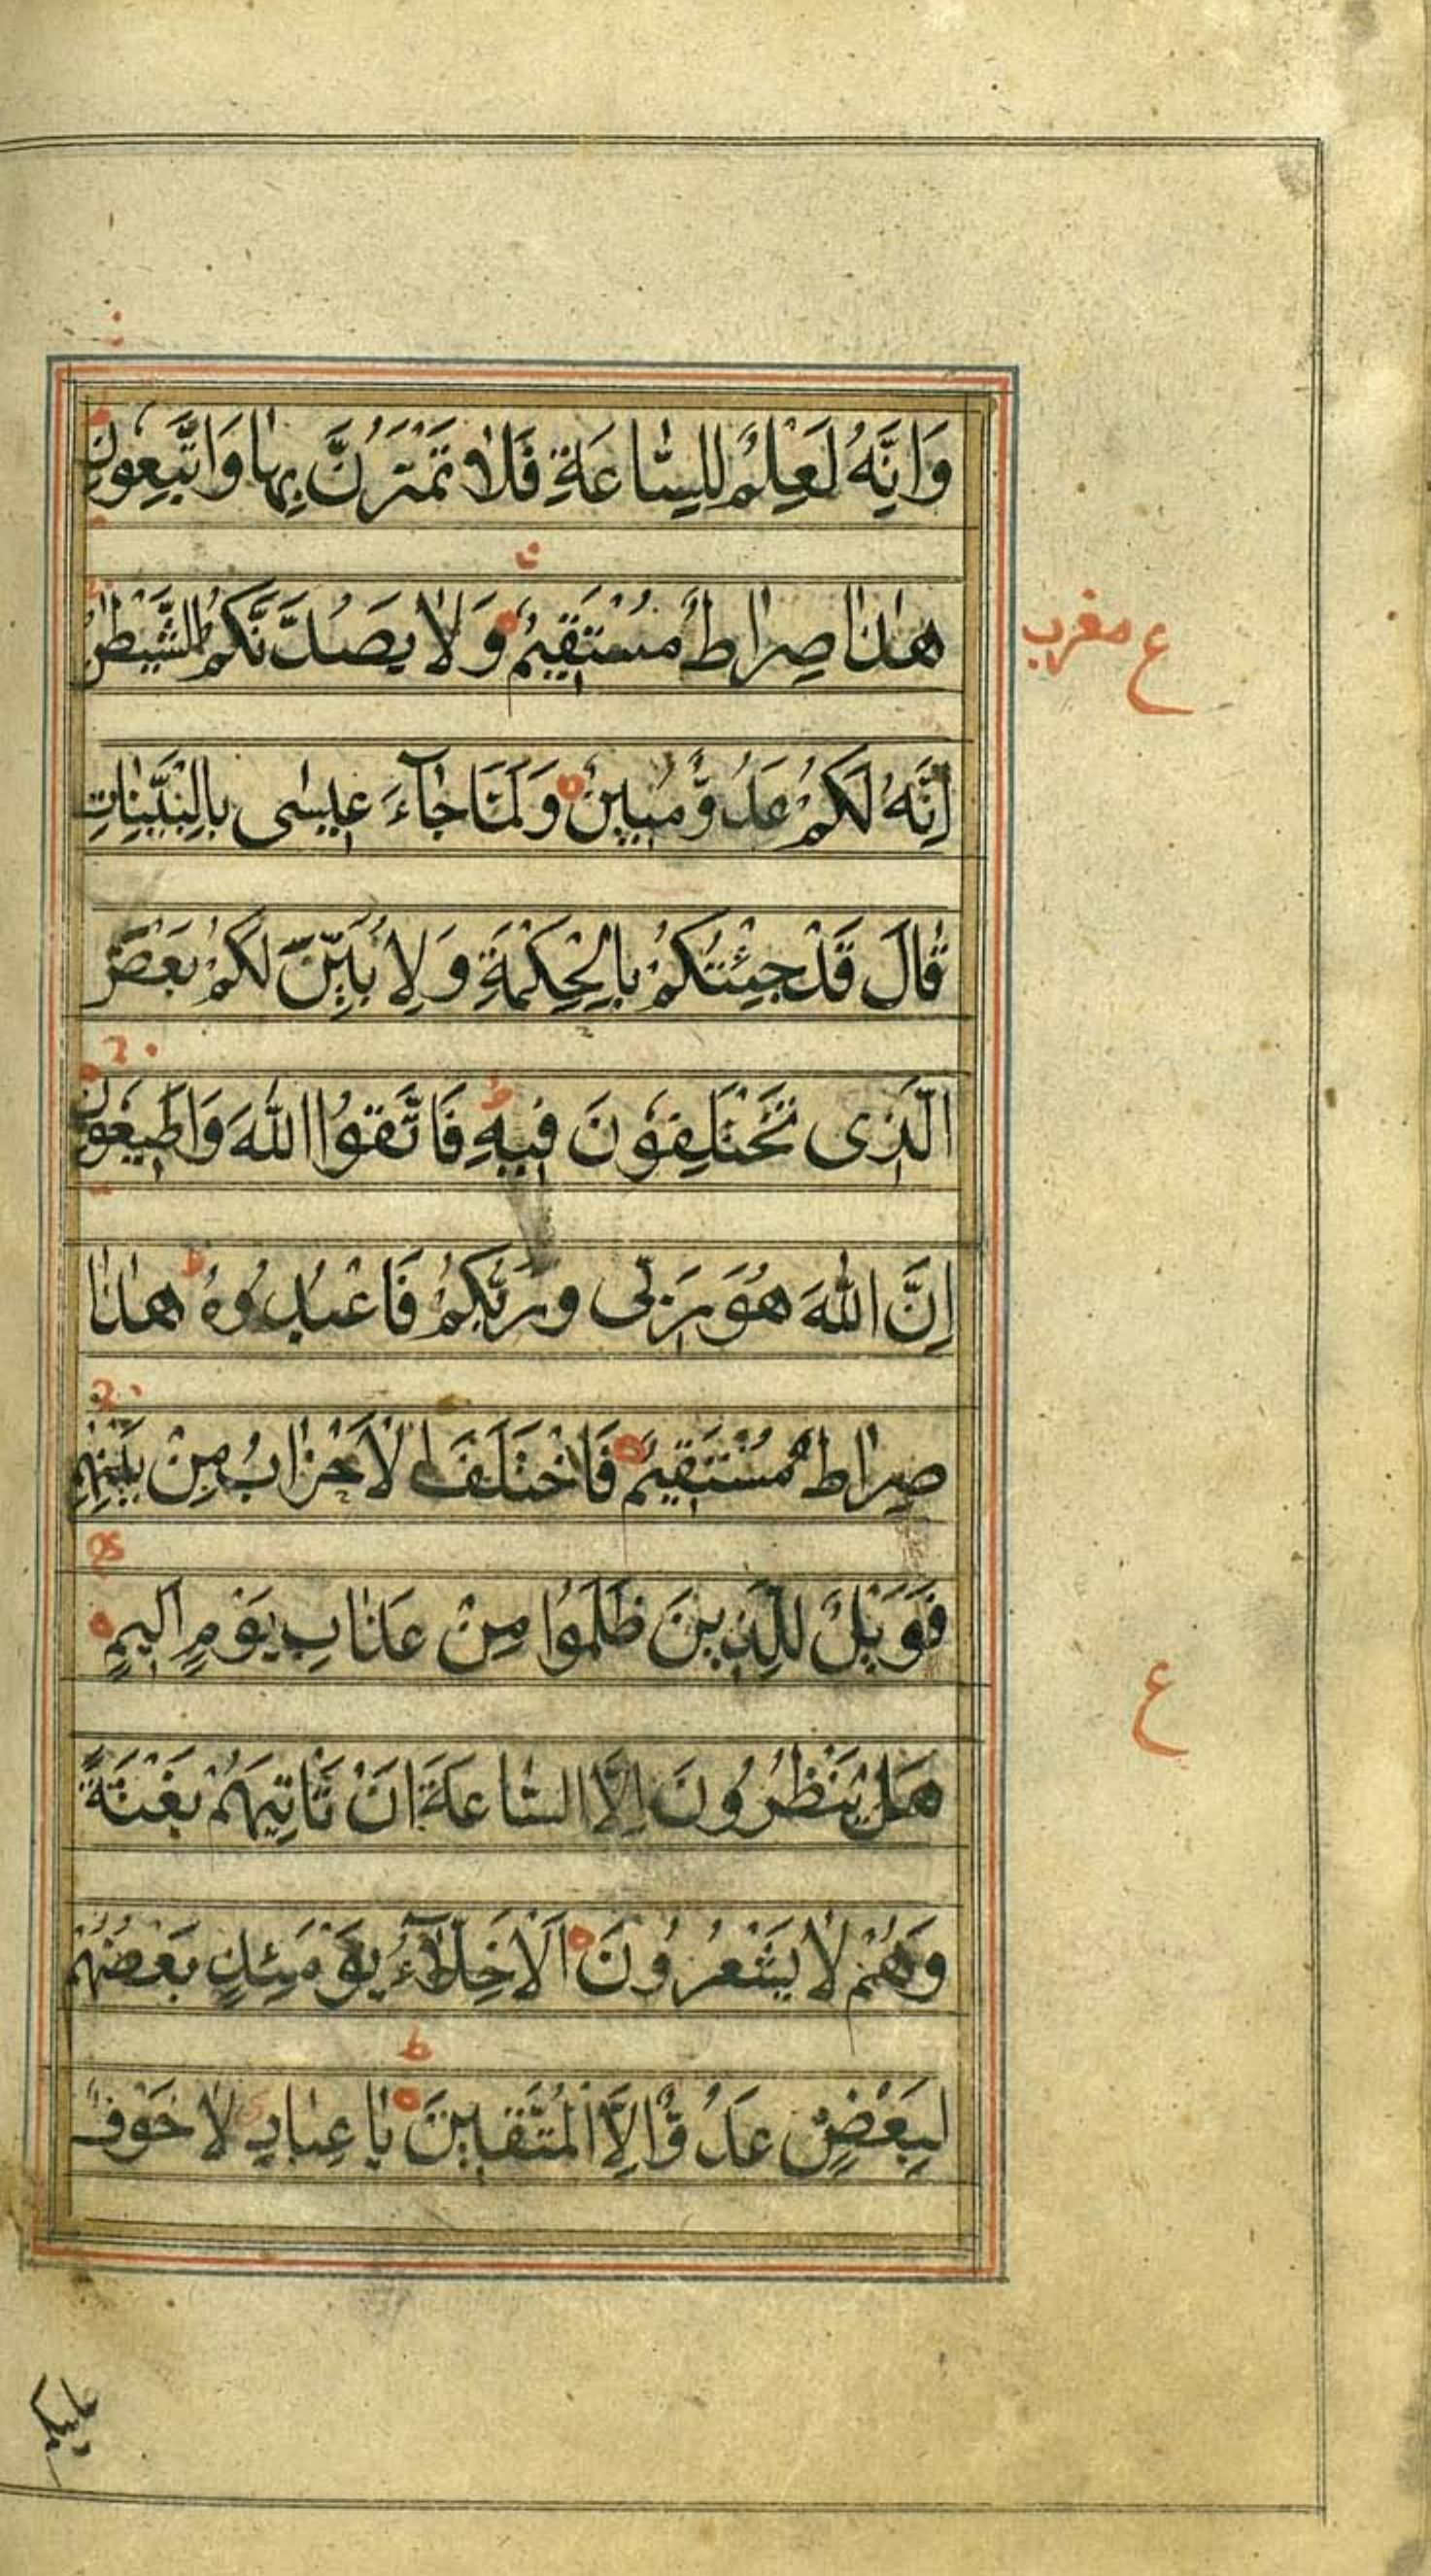 وَاِنَّهُ لَعِلْمٌ لِلسَّاعَةِ فَلَا تَمْتَرُنَّ بِهَا وَاتَّبِعُونِ
هٰذَا صِرَاطٌ مُسْتَقِيمٌ وَلَا يَصُدَّنَّكُمُ الشَّيْطٰنُ
ع مغرب
اِنَّهُ لَكُمْ عَدُوٌّ مُبِينٌ وَلَمَّا جَآءَ عِيسٰى بِالْبَيِّنَاتِ
قَالَ قَدْ جِئْتُكُمْ بِالْحِكْمَةِ وَلِاُبَيِّنَ لَكُمْ بَعْضَ
الَّذِى تَخْتَلِفُونَ فِيهِ ط فَاتَّقُوا اللّٰهَ وَاَطِيعُونِ
اِنَّ اللّٰهَ هُوَ رَبِّى وَرَبُّكُمْ فَاعْبُدُوهُ ط هٰذَا
صِرَاطٌ مُسْتَقِيمٌ فَاخْتَلَفَ الْاَحْزَابُ مِنْ بَيْنِهِمْ
فَوَيْلٌ لِلَّذِينَ ظَلَمُوا مِنْ عَذَابِ يَوْمٍ اَلِيمٍ
ع
هَلْ يَنْظُرُونَ اِلَّا السَّاعَةَ اَنْ تَاْتِيَهُمْ بَغْتَةً
وَهُمْ لَا يَشْعُرُونَ اَلْاَخِلَّآءُ يَوْمَئِذٍ بَعْضُهُمْ
لِبَعْضٍ عَدُوٌّ اِلَّا الْمُتَّقِينَ ط يَا عِبَادِ لَا خَوْفٌ
عليكم